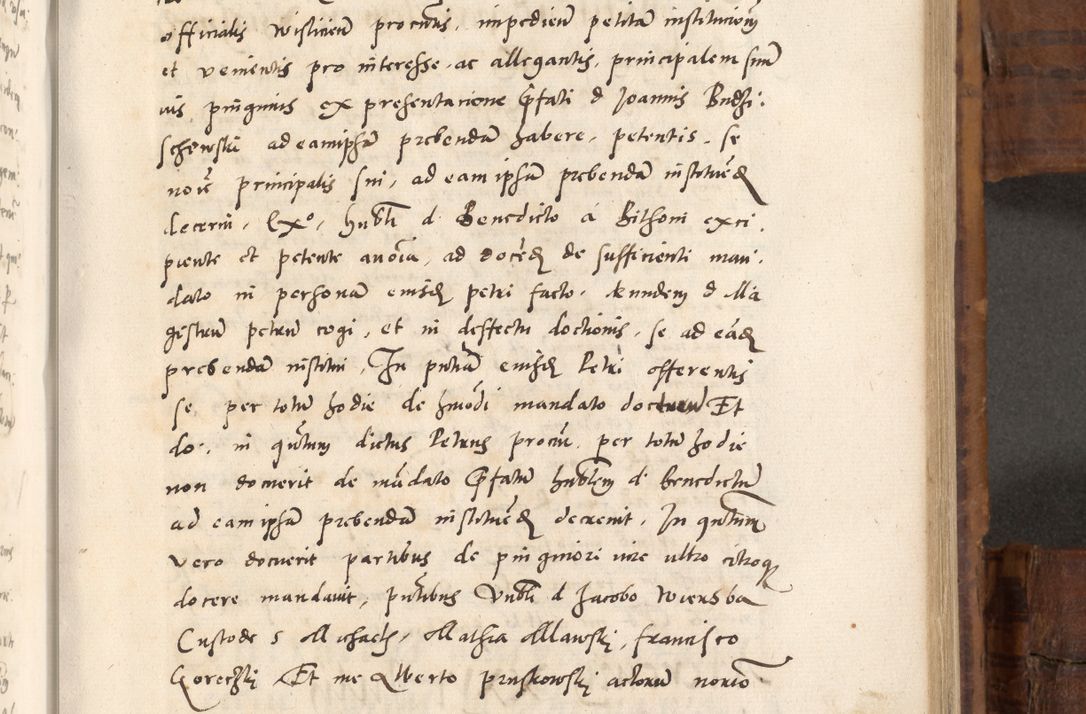 officialis Wisliciensis procuris, impediens petitam institucionem
et venientis pro interesse ac allegantis, principalem suum
ius pinguius ex presentacione pfati d Joannis Budzi.
schowski ad eamipsam prebendam habere, petentis, se
noie principalis sui, ad eam ipsam prebendam instituendum
decerni, Exo, hubli d Benedicto a Bithoni exci.
piente et petente avoia, ad docendum de sufficienti man.
dato in personam eiusdem petri facto, eundem d Ma
gistrum petrum cogi, et in deffectu doctionis, se ad eandem
prebendam institui, In pntiam eiusdem Petri offerentis
se per totum hodie de hmodi mandato docturum Et
do: in qntum dictus Petrus procur. per totum hodie
non docuerit de mandato pfatum hublem d benedictum
ad eam ipsam prebendam instituendum decrevit, In quntum
vero docuerit partibus de pinguiori iure ultro citroque
docere mandavit, pntibus Vnbli d Jacobo Wiersba
Custode S Michaelis, Mathia Mlawski, francisco
Goreczki Et me Alberto pruskowski actorum notario